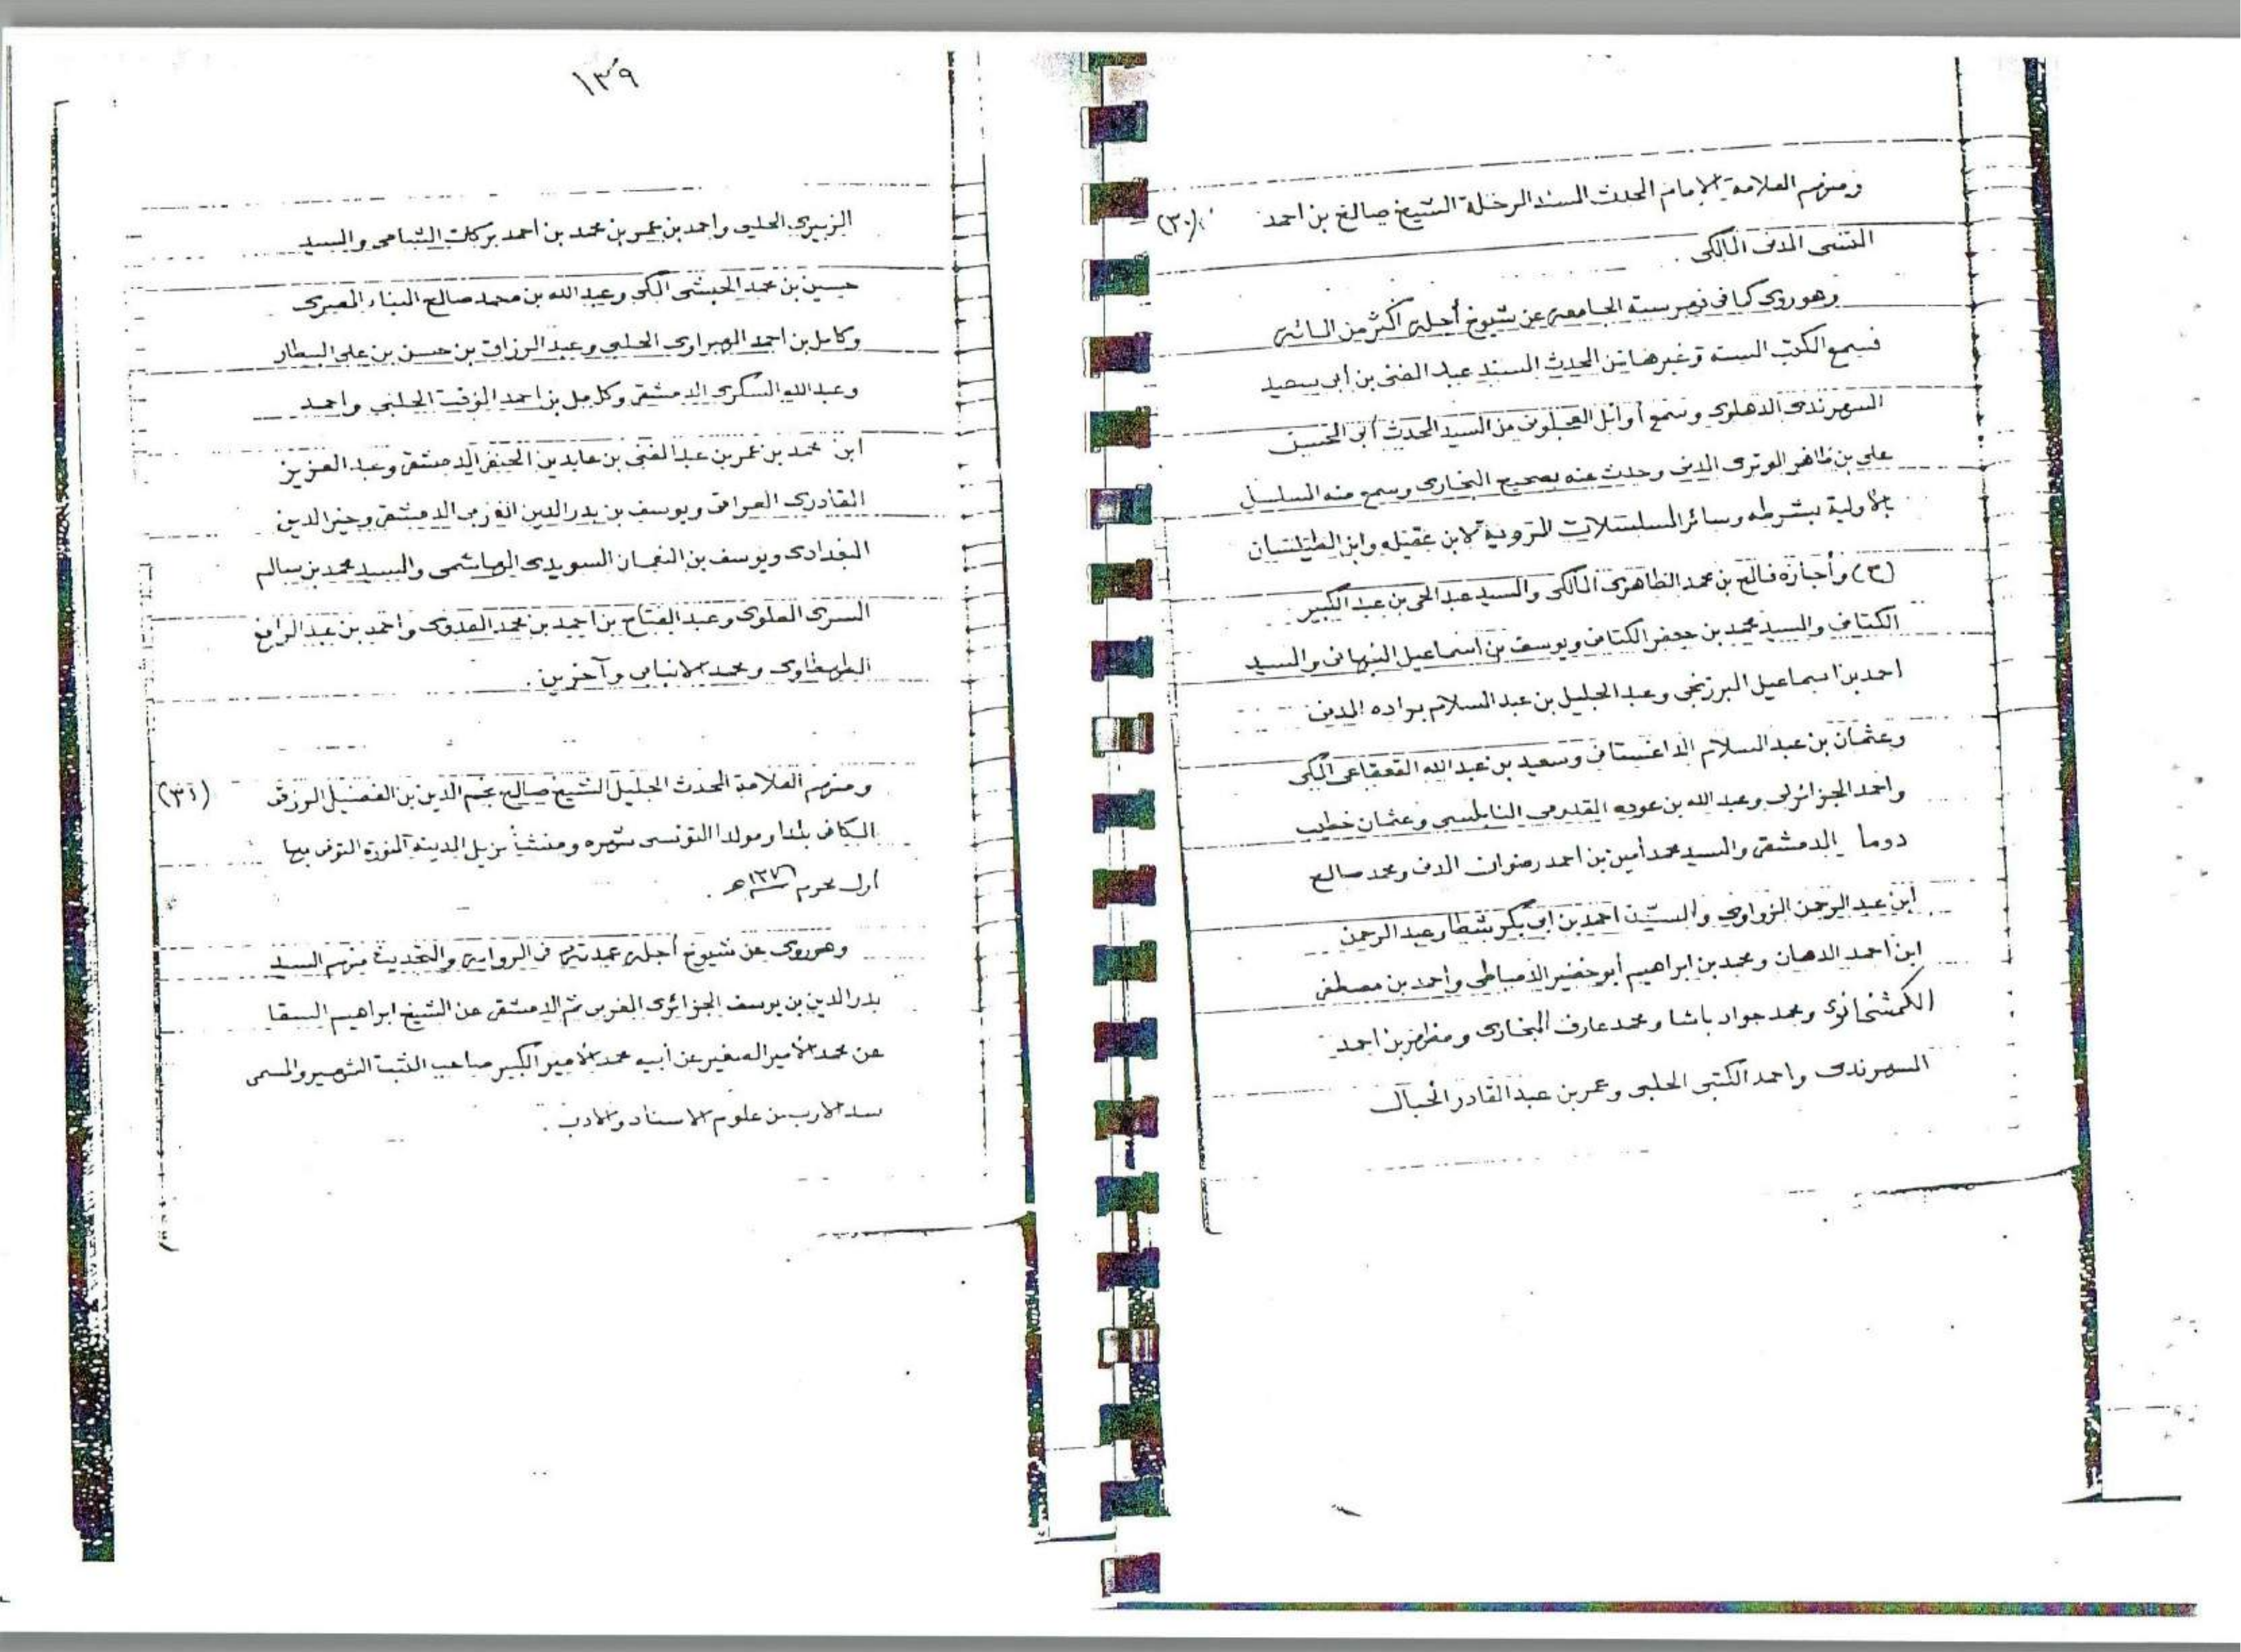 ومنهم العلامة الإمام المحدث المسند الرحلة الشيخ صالح بن احمد (٣٠)
المدنى المالكى .
وهو روى كما فى فهرسته الجامعة عن شيوخ أجلة أكثر من المائة
فسمع الكتب الستة وغيرها من المحدث المسند عبد الغنى بن أبى سعيد
السهرندى الدهلوى وسمع أوائل العجلونى من السيد المحدث أبى الحسن
على بن ظاهر الوترى المدنى وحدث عنه بصحيح البخارى وسمع منه المسلسل
بالأولية بشرطه وسائر المسلسلات المروية لابن عقيله وابن الطيلسان
(ح) وأجازه فالح بن محمد الظاهرى المالكى والسيد عبد الحى بن عبد الكبير
الكتانى والسيد محمد بن جعفر الكتانى ويوسف بن اسماعيل النبهانى والسيد
احمد بن اسماعيل البرزنجى وعبد الجليل بن عبد السلام براده المدنى
وعثمان بن عبد السلام الداغستانى وسعيد بن عبد الله القعقاعى المكى
واحمد الجزائرلى وعبد الله بن عوده القدومى النابلسى وعثمان خطيب
دوما الدمشقى والسيد محمد أمين بن احمد رضوان المدنى ومحمد صالح
ابن عبد الرحمن الزواوى والسيد احمد بن ابى بكر شطا وعبد الرحمن
ابن احمد الدهان ومحمد بن ابراهيم أبو خضير الدمياطى واحمد بن مصطفى
الكمشخانوى ومحمد جواد باشا ومحمد عارف البخارى و بن احمد
السهرندى واحمد الكتبى الحلبى وعمر بن عبد القادر الخبال
١٣٩
الزبيرى الحلبى واحمد بن عمر بن محمد بن أحمد بركات الشامى والسيد
حسين بن محمد الحبشى المكى وعبد الله بن محمد صالح البناء المصرى
وكامل بن احمد الهبراوى الحلبى وعبد الرزاق بن حسن بن على البيطار
وعبد الله السكرى الدمشقى وكامل بن احمد الموقت الحلبى واحمد
ابن محمد بن عمر بن عبد الغنى بن عابدين الحنفى الدمشقى وعبد العزيز
القادرى العراقى ويوسف بن بدر الدين المغربى الدمشقى وخير الدين
البغدادى ويوسف بن النعمان السويدى الهاشمى والسيد محمد بن سالم
السرى العلوى وعبد الفتاح بن احمد بن محمد العدوى واحمد بن عبد الرافع
الطهطاوى ومحمد الانبابى وآخرين .
ومنهم العلامة المحدث الجليل الشيخ صالح نجم الدين بن الفضيل الرزقى (٣١)
الكافى بلدا ومولدا التونسى شهره ومنشأ نزيل المدينة المنورة المتوفى بها
أول محرم ١٣٧٦ هـ .
وهو روى عن شيوخ أجلة عمدته فى الرواية والتحديث منهم السيد
بدر الدين بن يوسف الجزائرى المغربى ثم الدمشقى عن الشيخ ابراهيم السقا
عن محمد الأمير الصغير عن أبيه محمد الأمير الكبير صاحب الثبت الشهير والمسمى
سد الارب من علوم الاسناد والادب .